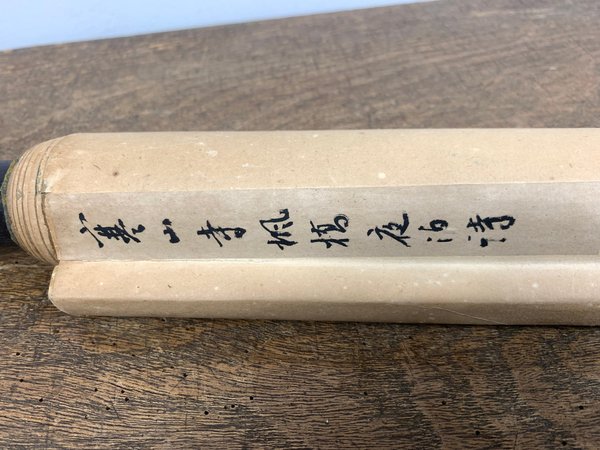 寒山寺楓橋夜泊詩